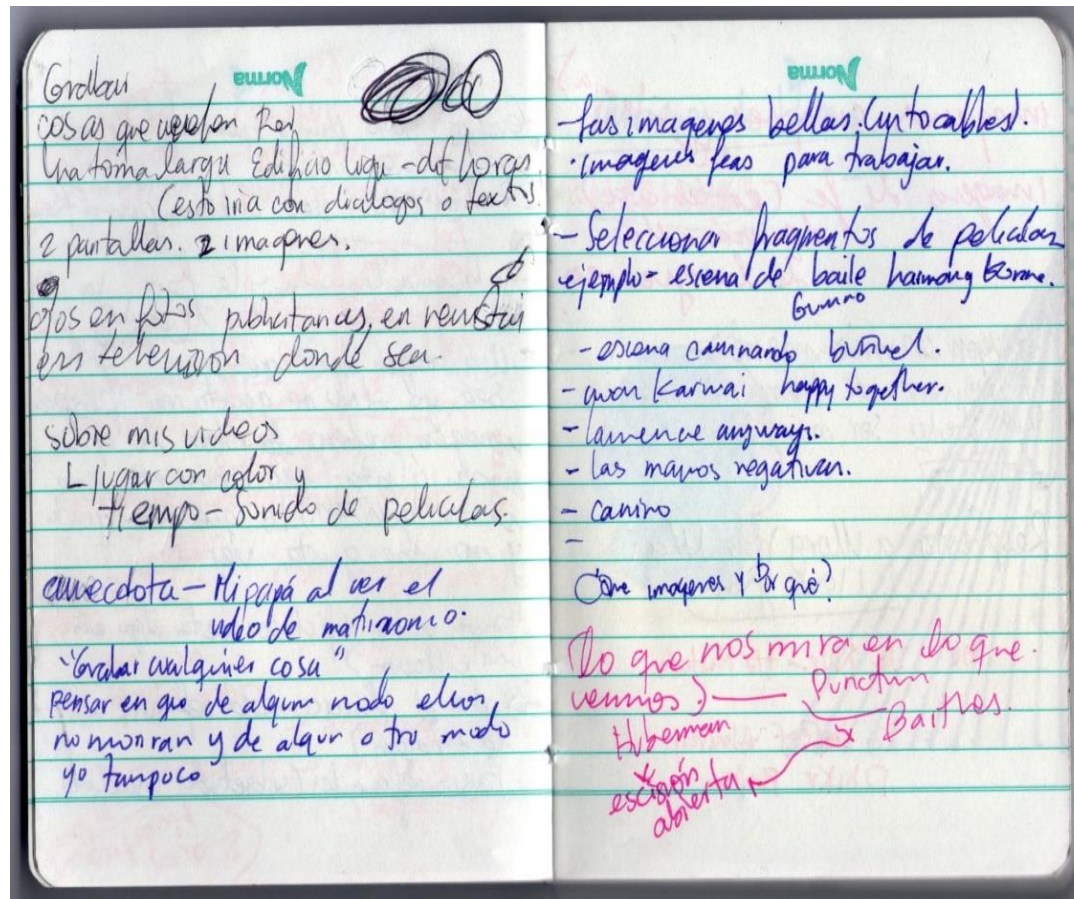 Norma
Grabar
cosas que
Una toma larga Edificio - dif horas
(esto iría con diálogos o textos.
2 pantallas. 2 imagenes.
ojos en fotos publicitarias, en revistas
en television donde sea.
sobre mis videos
L lugar con color y
tiempo - sonido de peliculas.
anecdota - Mi papá al ver el
video de matrimonio.
"Grabar cualquier cosa"
pensar en que de algun modo ellos
no moriran y de algun otro modo
yo tampoco
Norma
- las imagenes bellas. (intocables).
· imagenes feas para trabajar.
- Seleccionar fragmentos de peliculas
ejemplo - escena de baile harmony
- escena caminando
- won Karwai happy together.
- lawrence anyways.
- las manos negativas.
- camino
-
Que imagenes y por qué?
Lo que nos mira en lo que
vemos) — Punctum
Huberman Barthes.
x
escisión
abierta